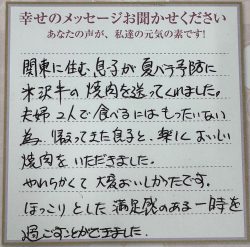 幸せのメッセージお聞かせください
あなたの声が、私達の元気の素です!
関東に住む息子が夏バテ予防に
米沢牛の焼肉を送ってくれました。
夫婦2人で食べるにはもったいない
為、帰ってきた息子と、楽しくおいしい
焼肉をいただきました。
やわらかくて大変おいしかったです。
ほっこりとした満足感のある一時を
過ごすことができました。